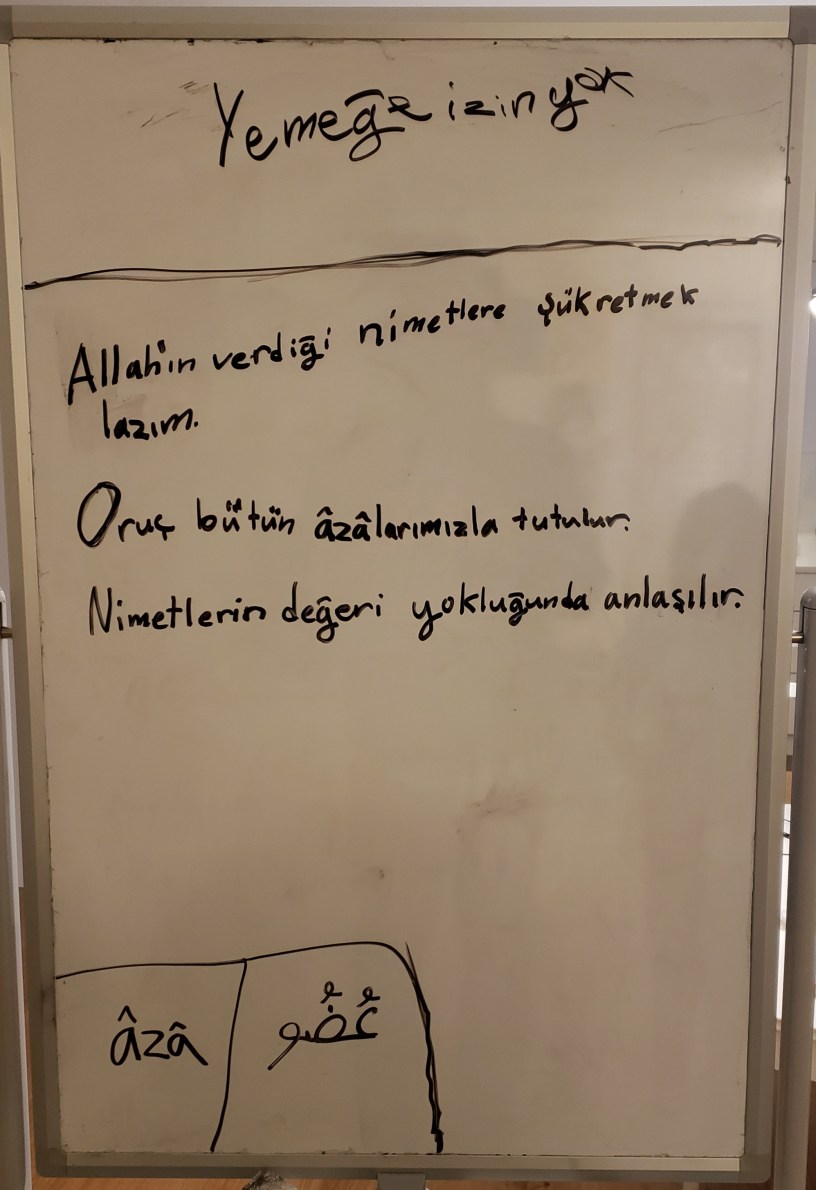 Yemeğe izin yok
Allah'ın verdiği nimetlere şükretmek
lazım.
Oruç bütün âzâlarımızla tutulur.
Nimetlerin değeri yokluğunda anlaşılır.
âzâ
عُضُو